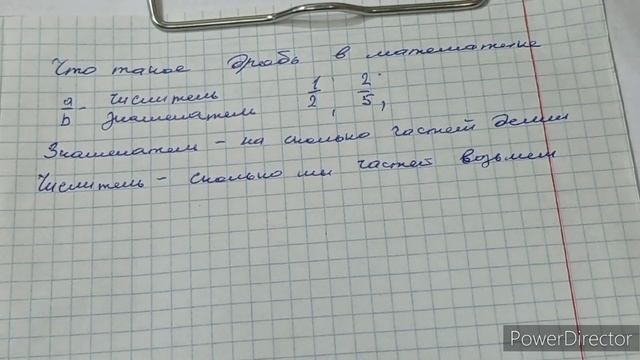 Что такое дробь в математике
a/b - числитель знаменатель 1/2, 2/5,
Знаменатель - на сколько частей делим
Числитель - сколько мы частей возьмем
PowerDirector